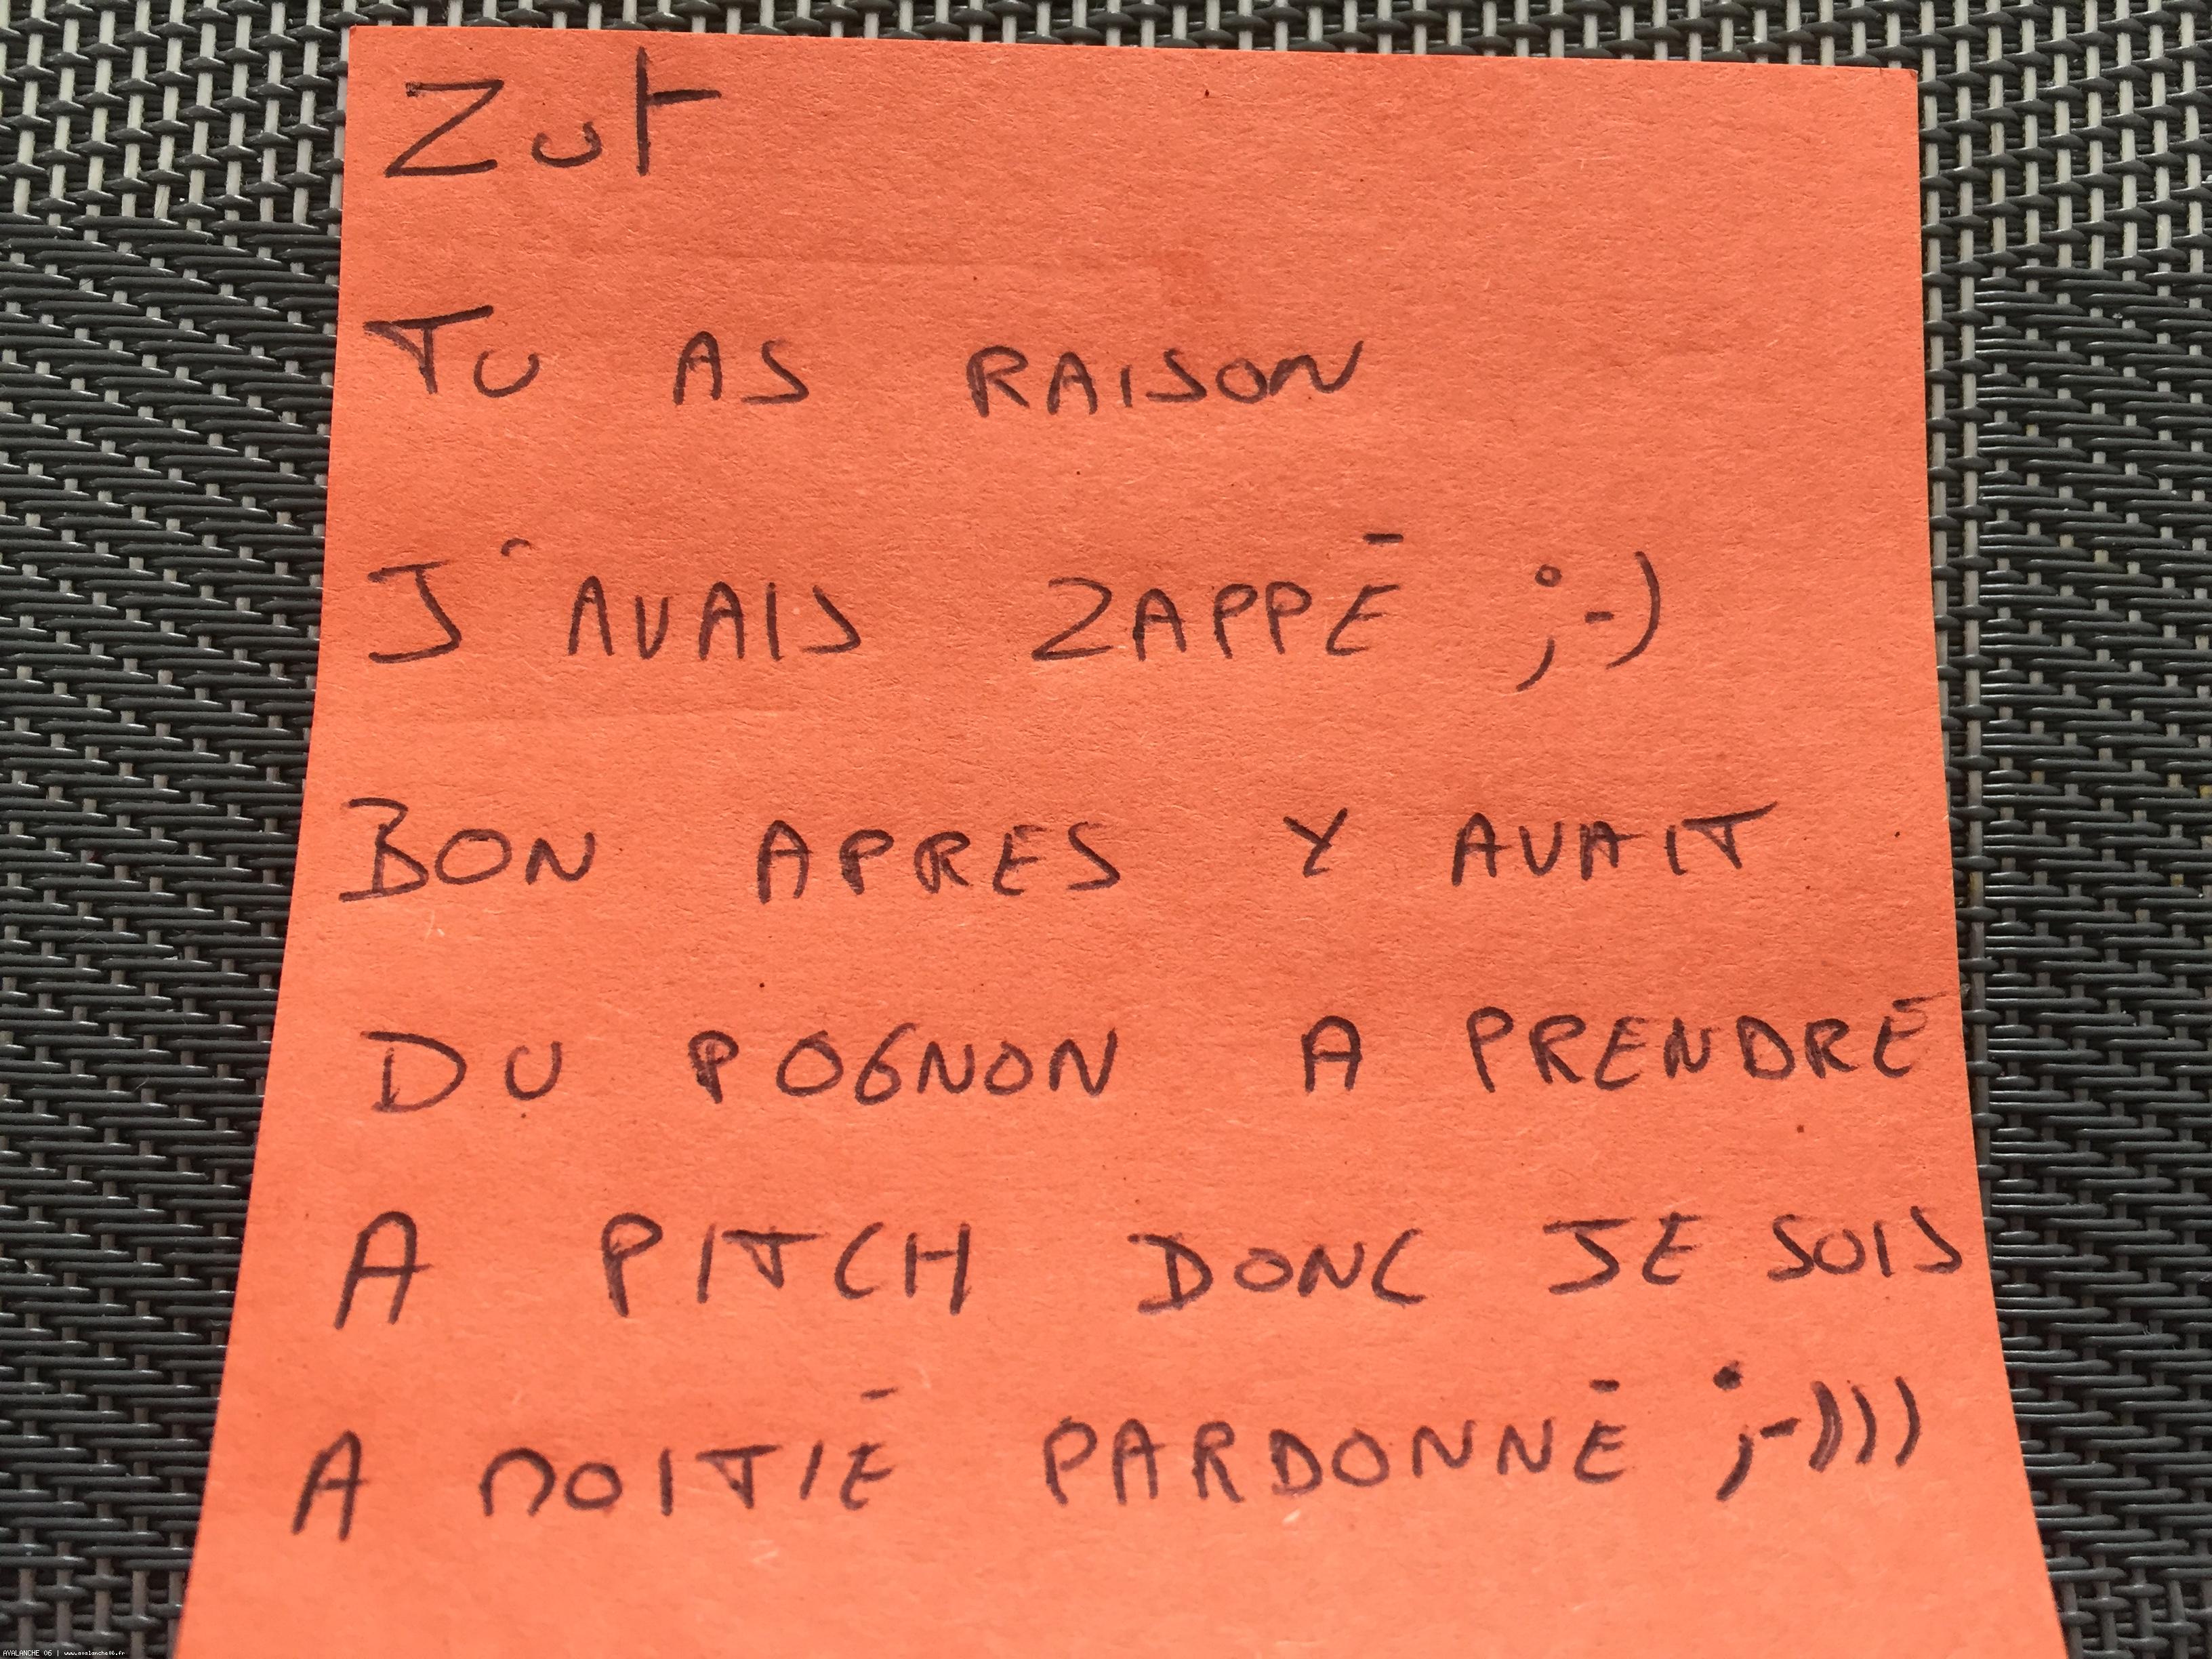 Zut
TU AS RAISON
J'AVAIS ZAPPÉ ;-)
BON APRES Y AVAIT
DU POGNON A PRENDRE
A PITCH DONC JE SUIS
A MOITIÉ PARDONNÉ ;-))))
AVALANCHE 06 | www.avalanche06.fr